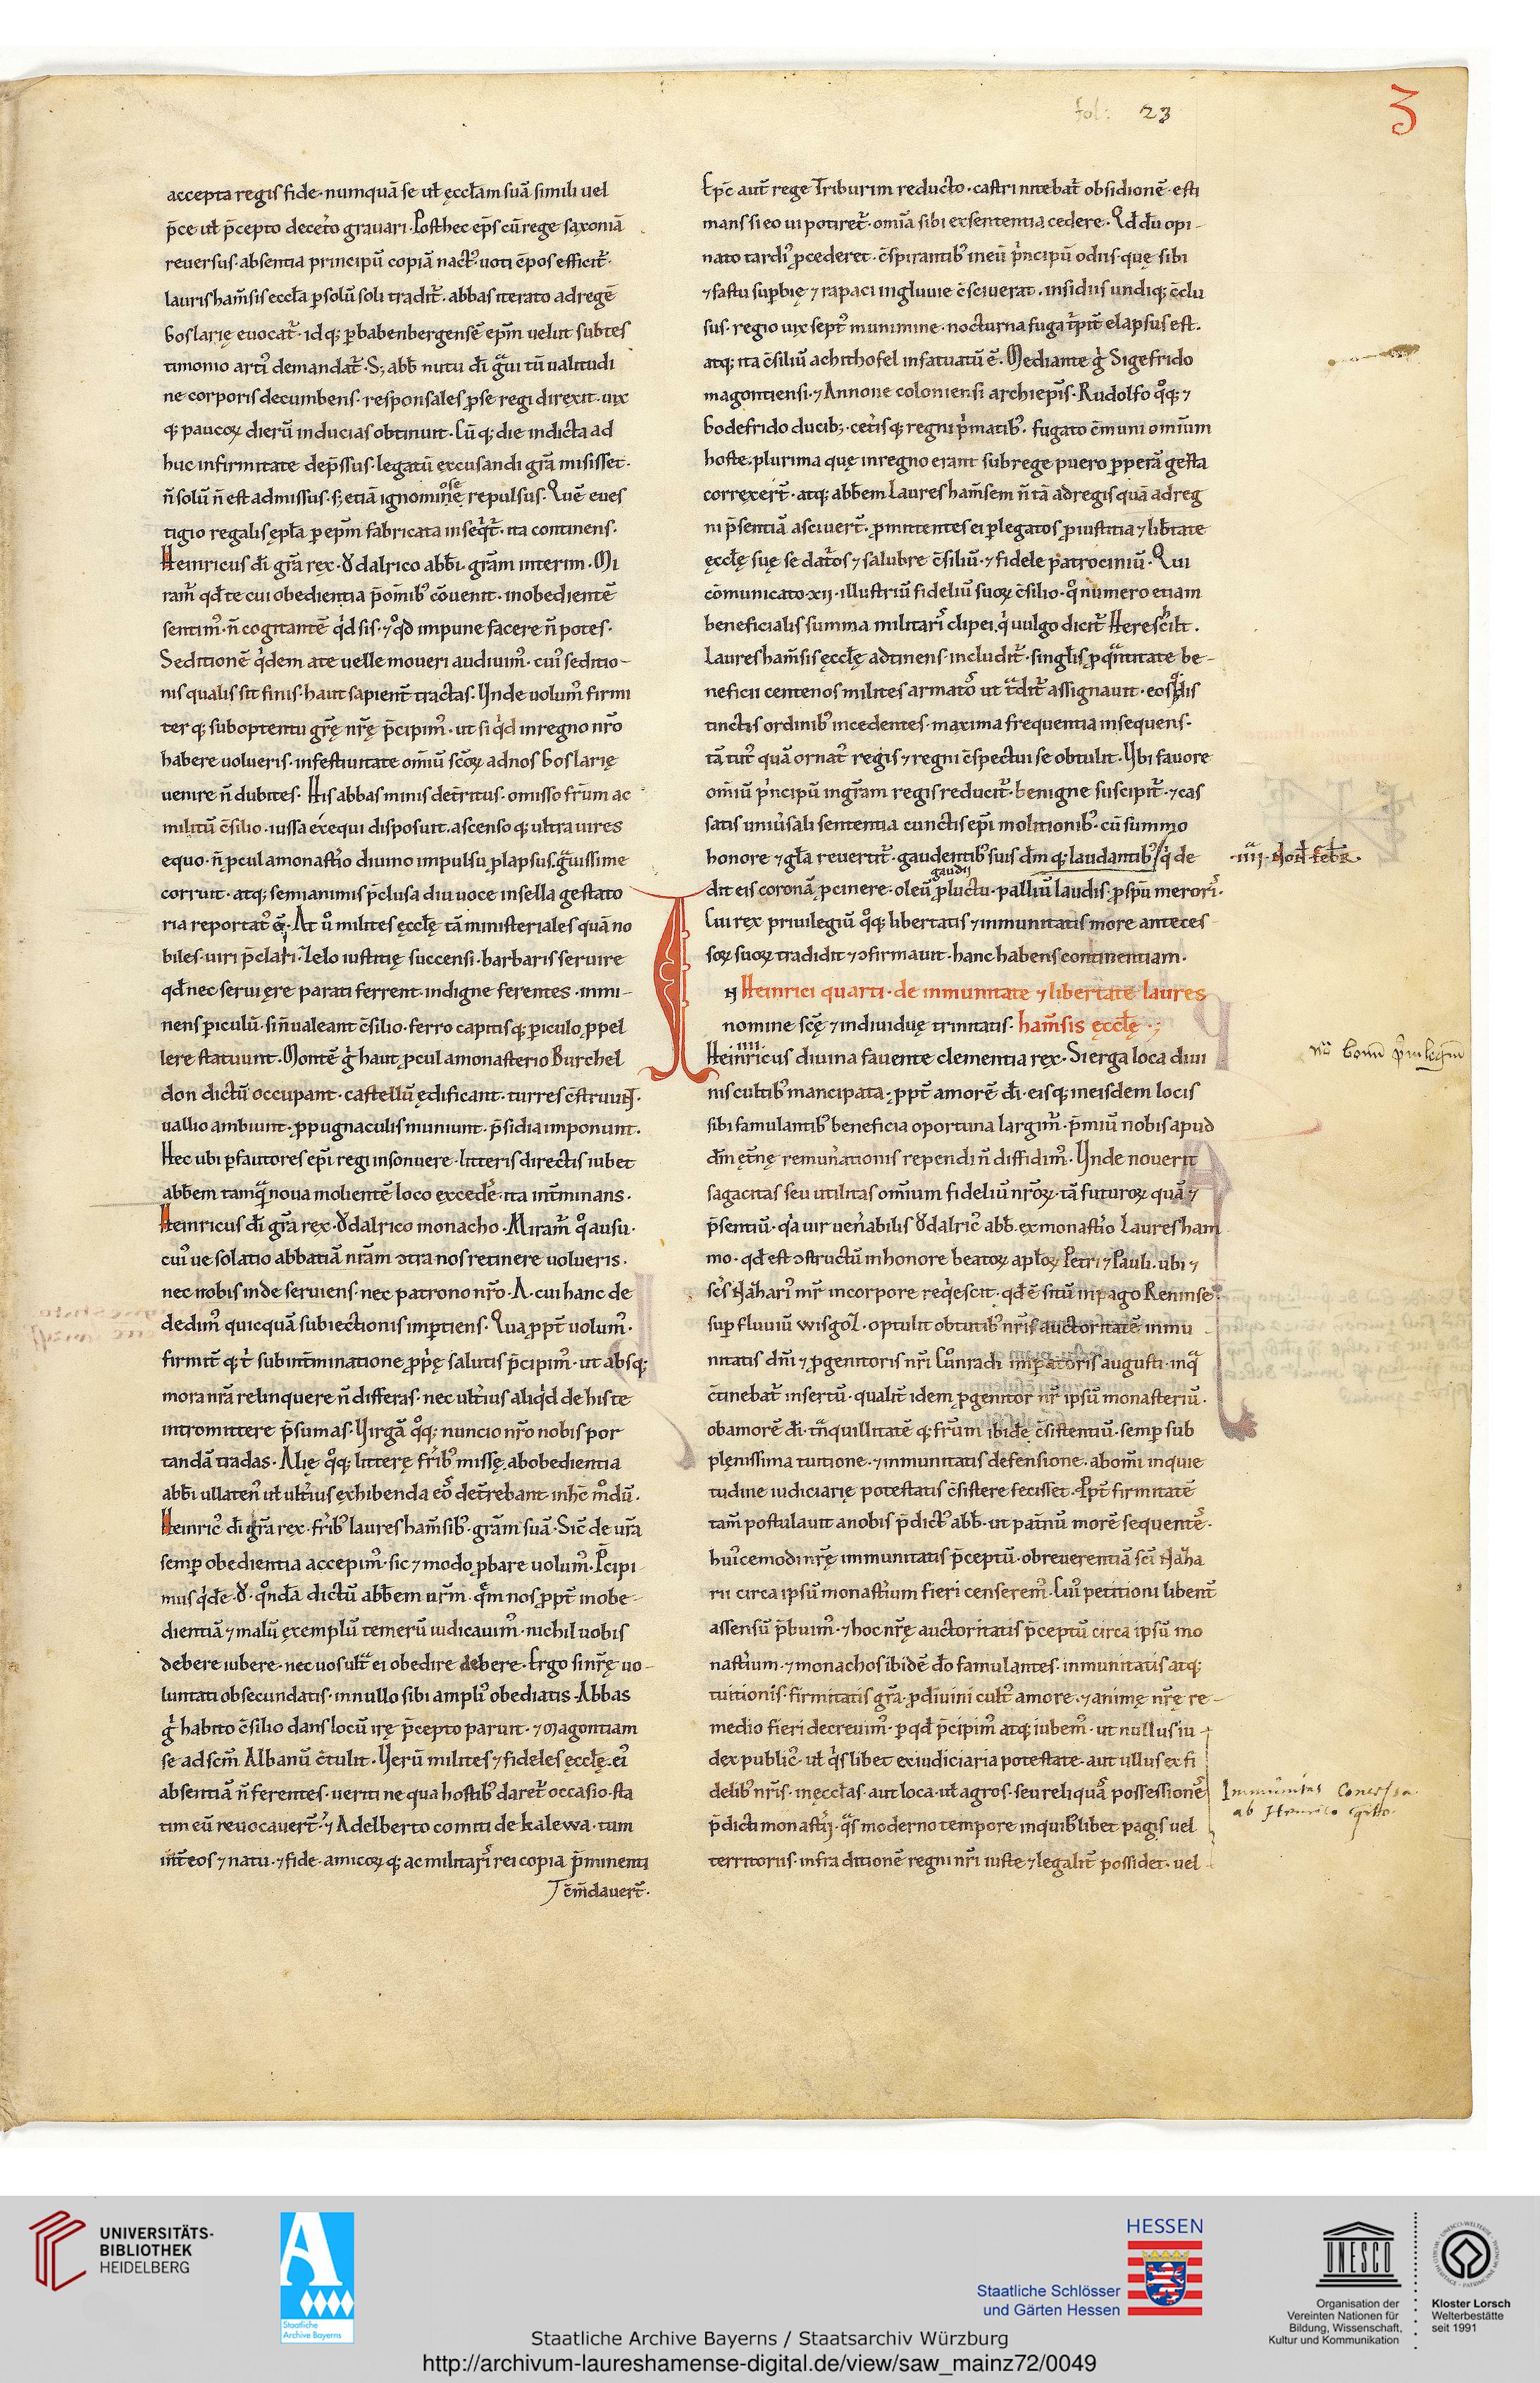 fol: 23
3
accepta regis fide · numquā se ul̄ ęccłam suā simili uel
p̄ce ul̄ p̄cepto decet̓o grauari · Post hec ep̄s cū rege saxoniā
reuersus · absentia principū copiā nact᾿ · uoti c̄pos efficit̄ ·
laurisham̄sis eccła p solū soli tradit̄ · abbas iterato ad regē
Goslarię euocat̄ · idq; p babenbergensē ep̄m uelut subtes
timonio arti᾿ demandat̄ · S; abb̄ nutu dī g̃ui tū ualitudi
ne corporis decumbens · responsales p se regi direxit · uix
q; paucoꝝ dierū inducias obtinuit · Cū q; die indicta ad
huc infirmitate dep̄ssus · legatū excusandi grā misisset ·
n̄ solū n̄ est admissus · s; etiā ignominiose repulsus · Quē eues
tigio regalis epła p ep̄m fabricata inseq̇t̄ · ita continens ·
Heinricus dī grā rex · Ůdalrico abb̄i · grām interim · Mi
ram̄ qd̄ te cui obedientia p̄ omīb᾿ cōuenit · inobedientē
sentim᾿ · n̄ cogitantē q̇d sis · ⁊ q̊d impune facere n̄ potes ·
Seditionē q̇dem a te uelle moueri audiuim᾿ · cui᾿ seditio-
nis qualis sit finis · haut sapient̄ tractas · Unde uolum᾿ firmi
ter q; sub optentu grę̄ nrę̄ p̄cipim᾿ · ut si q̇d in regno nr̄o
habere uolueris · in festiuitate omīū sc̄oꝝ ad nos Goslarię
uenire n̄ dubites · His abbas minis det̄ritus · omisso fr̄um ac
militū c̄silio · iussa exequi disposuit · ascenso q; ultra uires
equo · n̄ pcul a monast̄io diuino impulsu plapsus g̃uissime
corruit · atq; semianimis p̄clusa diu uoce in sella gestato
ria reportat᾿ ē · At ů milites ęccłę tā ministeriales quā no
biles · uiri p̄clari · Zelo iustitię succensi · barbaris seruire
qd̄ nec seruięre parati ferrent · indigne ferentes · inmi-
nens piculū · si n̄ ualeant c̄silio · ferro capitisq; piculo ppel
lere statuunt · Montē g̊ haut pcul a monasterio Burchel
don dictū occupant · castellū ędificant · turres c̄struunt ·
uallio ambiunt · ppugnaculis muniunt · p̄sidia imponunt ·
Hec ubi p fautores ep̄i regi insonuere · litteris directis iubet
abb̄em tamq̃ noua molientē loco excedē · ita int̄minans ·
Heinricus dī grā rex · Ůdalrico monacho · Miram̄ q̊ ausu ·
cui᾿ ue solatio abbatiā nrām ↄtra nos retinere uolueris ·
nec nobis inde seruiens · nec patrono nr̄o · A · cui hanc de
dedim᾿ quicquā subiectionis imptiens · Qua ppt̄ uolum᾿ ·
firmit̄ q; t᾿ sub int̄minatione ppę̄ salutis p̄cipim᾿ · ut absq;
mora nrā relinquere n̄ differas · nec ult̓ius aliq̇d de his te
intromittere p̄sumas · Uirgā q̊q; nuncio nr̄o nobis por
tandā tradas · Alię q̊q; litterę fr̄ib᾿ missę · ab obedientia
abb̄i ullaten᾿ ul̄ ult̓ius exhibenda eo᾿ det̄rebant in hc̄ m̊dū ·
Heinric᾿ dī grā rex · fr̄ib᾿ laureshām̄sib᾿ · grām suā · Sic̄ de urā
semp obedientia accepim᾿ · sic ⁊ modo pbare uolum᾿ · P̄cipi
mus q̇dē · Ů · q̊ndā dictū abb̄em ur̄m · q̄m nos ppt̄ inobe-
dientiā ⁊ malū exemplū temerū iudicauim᾿ · nichil uobis
debere iubere · nec uos ult̃ ei obedire debere · Ergo si nrę̄ uo-
luntati obsecundatis · in nullo sibi ampli᾿ obediatis · Abbas
g̊ habito c̄silio dans locū irę p̄cepto paruit · ⁊ Magontiam
se ad scm̄ Albanū c̄tulit · Uerū milites ⁊ fideles ęccłę · ei᾿
absentiā n̄ ferentes · ueriti ne qua hostib᾿ daret̄ occasio · sta
tim eū reuocauert̄ · ⁊ Adelberto comiti de kalewa · tum
int̄ eos ⁊ natu · ⁊ fide · amicoꝝ q; ac militari᾿ rei copia p̄minenti
c̄m̄dauert̄ ·
Ep̄c aut̄ rege Triburim reducto · castri nitebat̄ obsidionē · esti
mans si eo ui potiret̄ · omīa sibi ex sententia cedere · Qd̄ dū opi-
nato tardi᾿ pcederet · c̄spirantib᾿ in eū p̓ncipū odiis · quę sibi
⁊ fastu supbię ⁊ rapaci ingluuie c̄sciuerat · insidiis undiq; c̄clu
sus · regio uix sept᾿ munimine · nocturna fuga t̓pit̄ elapsus est ·
atq; ita c̄siliū achithofel infatuatū ē · Mediante g̊ Sigefrido
magontiensi · ⁊ Annone coloniensi archiep̄is · Rudolfo q̊q; ⁊
Godefrido ducib; · cet̓is q; regni p̓matib᾿ · fugato c̄muni omīum
hoste · plurima quę in regno erant sub rege puero pperā gesta
correxert̄ · atq; abb̄em Laureshām̄sem n̄ tā ad regis quā ad reg
ni p̄sentiā asciuert̄ · pmittentes ei p legatos p iustitia ⁊ lib̄tate
ęccłę suę se datos᾿ ⁊ salubre c̄siliū · ⁊ fidele patrociniū · Qui
cōmunicato · xij · illustriū fideliū suoꝝ c̄silio · q̊ numero etiam
beneficialis summa militari᾿ clipei, q̇ uulgo dicit̄ Herescilt ·
Laureshām̄sis ęccłę adtinens · includit̄ · singłis p q̃ntitate be-
neficii centenos milites armato᾿ ut t̃dit̄ assignauit · eos p̊ dis
tinctis ordinib᾿ incedentes · maxima frequentia insequens ·
tā tut᾿ quā ornat᾿ regis ⁊ regni c̄spectui se obtulit · Ubi fauore
omīū p̓ncipū in grām regis reducit̄ · benigne suscipit̄ · ⁊ cas
satis uniu᾿sali sententia cunctis ep̄i molitionib᾿ · cū summo
honore ⁊ głā reuertit̄ · gaudentib᾿ suis dm̄ q; laudantib᾿ / q̇ de
· iiij · Non̄ febr̄ ·
gaudij
dit eis coronā p cinere · oleū p luctu · palliū laudis · p spū meroris᾿ ·
Cui rex priuilegiū q̊q; libertatis ⁊ inmunitatis more anteces-
soꝝ suoꝝ tradidit ⁊ ↄfirmauit · hanc habens continentiam ·
N Heinrici quarti · de inmunitate ⁊ libertate laures
I nomine scę̄ ⁊ indiuiduę trinitatis · hām̄sis ęccłę ·
IIII.
Heinricus diuina fauente clementia rex · Si erga loca diui
nis cultib᾿ mancipata · ppt̄ amorē dī · eisq; in eisdem locis
sibi famulantib᾿ beneficia oportuna largim̄ · p̄miū nobis apud
dm̄ ęt̄nę remun᾿ationis rependi n̄ diffidim᾿ · Unde nouerit
sagacitas seu utilitas omīum fideliū nr̄oꝝ · tā futuroꝝ quā ⁊
p̄sentiū · q̇a uir uen᾿abilis Ůdalric᾿ abb̄ · ex monast̄io Lauresham
mo · qd̄ est ↄstructū in honore beatoꝝ apłoꝝ Petri ⁊ Pauli · ubi ⁊
sc̄s Nahari᾿ mr̄ in corpore req̇escit · qd̄ ē sitū in pago Reninse ·
sup fluuiū wisgoz · optulit obtutib᾿ nr̄is auctoritatē inmu
nitatis dn̄i ⁊ pgenitoris nr̄i Cůnradi impatoris augusti · in q̃
c̄tinebat̄ insertū · qualit̄ idem pgenitor nr̄ ipsū monasteriū ·
ob amorē dī · t̃nquillitatē q; fr̄um ibidē c̄sistentiū · semp sub
plęnissima tuitione · ⁊ inmunitatis defensione · ab omī inquie
tudine iudiciarię potestatis c̄sistere fecisset · Ppt̄ firmitatē
tam̄ postulauit a nobis p̄dict᾿ abb̄ · ut pat̓nū morē sequentē᾿ ·
hui᾿cemodi nrę̄ immunitatis p̄ceptū · ob reuerentiā sc̄i Naha
rii circa ipsū monast̄ium fieri censerem᾿ · Cui᾿ petitioni libent̄
assensū p̄buim᾿ · ⁊ hoc nrę̄ auctoritatis p̄ceptū circa ipsū mo
nast̄ium · ⁊ monachos ibidē dō famulantes · inmunitatis atq;
tuitionis · firmitatis grā · p diuini cult᾿ amore · ⁊ animę nrę̄ re-
medio fieri decreuim᾿ · p qd̄ p̄cipim᾿ atq; iubem᾿ · ut nullus iu-
dex public᾿ · ul̄ q̇s libet ex iudiciaria potestate · aut ullus ex fi
delib᾿ nr̄is · in ęccłas · aut loca · ul̄ agros · seu reliquā᾿ possessionē᾿
p̄dicti monast̄ij · q̃s moderno tempore in quib᾿libet pagis uel
territoriis · infra ditionē regni nr̄i iuste ⁊ legalit̄ possidet · uel
Immunitas Concessa
ab Henrico q̊rto.
UNIVERSITÄTS-
BIBLIOTHEK
HEIDELBERG
Staatliche
Archive Bayerns
HESSEN
Staatliche Schlösser
und Gärten Hessen
UNESCO
Organisation der
Vereinten Nationen für
Bildung, Wissenschaft,
Kultur und Kommunikation
Kloster Lorsch
Welterbestätte
seit 1991
Staatliche Archive Bayerns / Staatsarchiv Würzburg
http://archivum-laureshamense-digital.de/view/saw_mainz72/0049